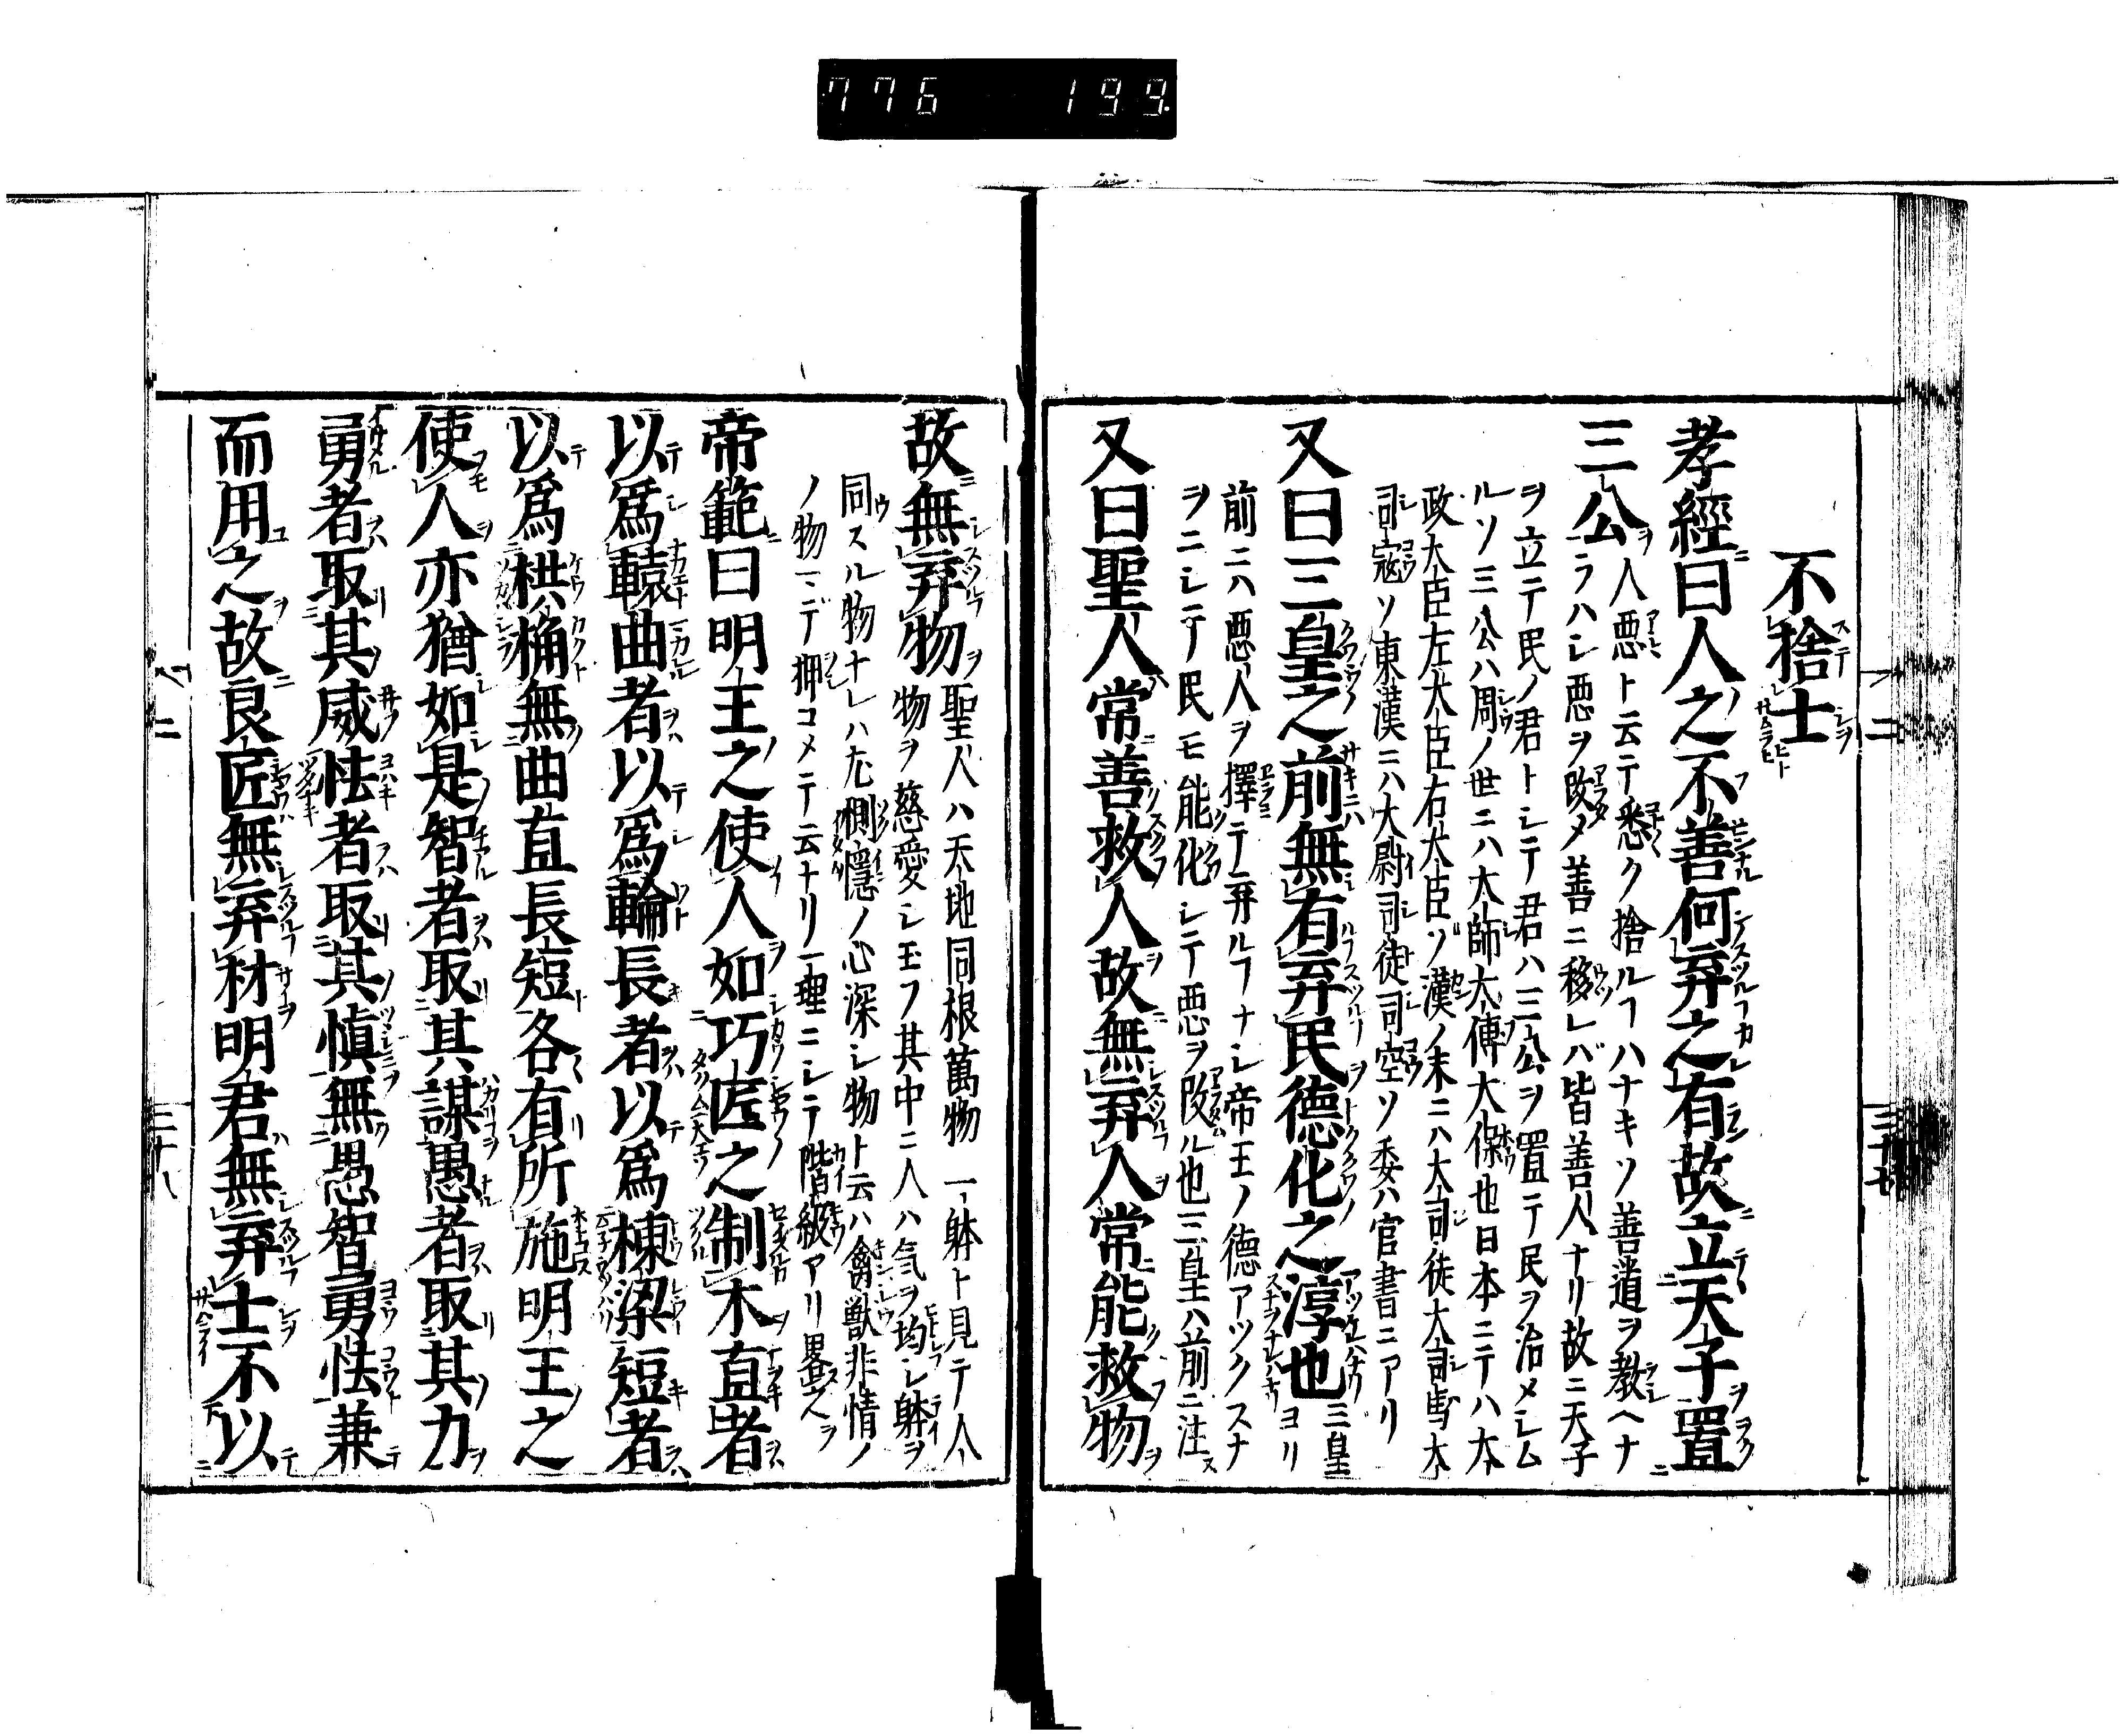 776 199
不捨士
孝經曰人之不善何弃之有故立天子置
三公
人悪ト云テ悉ク捨ルヿハナキソ善道ヲ教ヘナ
ラハシ悪ヲ改メ善ニ移レバ皆善人ナリ故ニ天子
ヲ立テ民ノ君トシテ君ハ三公ヲ置テ民ヲ治メシム
ルソ三公ハ周ノ世ニハ大師大傅大保也日本ニテハ太
政大臣左大臣右大臣ゾ漢ノ末ニハ大司徒大司馬大
司寇ソ東漢ニハ大尉司徒司空ソ委ハ官書ニアリ
又曰三皇之前無有弃民德化之淳也
三皇ヨリ
前ニハ悪人ヲ擇テ弃ルヿナシ帝王ノ徳アツクスナ
ヲニシテ民モ能化シテ悪ヲ改ル也三皇ハ前ニ注ス
又曰聖人常善救人故無弃人常能救物
故無弃物
聖人ハ天地同根萬物一躰ト見テ人
物ヲ慈愛シ玉フ其中ニ人ハ気ヲ均シ躰ヲ
同スル物ナレハ尤惻隱ノ心深シ物ト云ハ禽獣非情ノ
ノ物マデ押コメテ云ナリ一理ニシテ階級アリ畧之
帝範曰明王之使人如巧匠之制木直者
以爲轅曲者以爲輪長者以爲棟梁短者
以爲栱桷無曲直長短各有所施明王之
使人亦猶如是智者取其謀愚者取其力
勇者取其威怯者取其愼無愚智勇怯兼
而用之故良匠無弃材明君無弃士不以
二
三十八